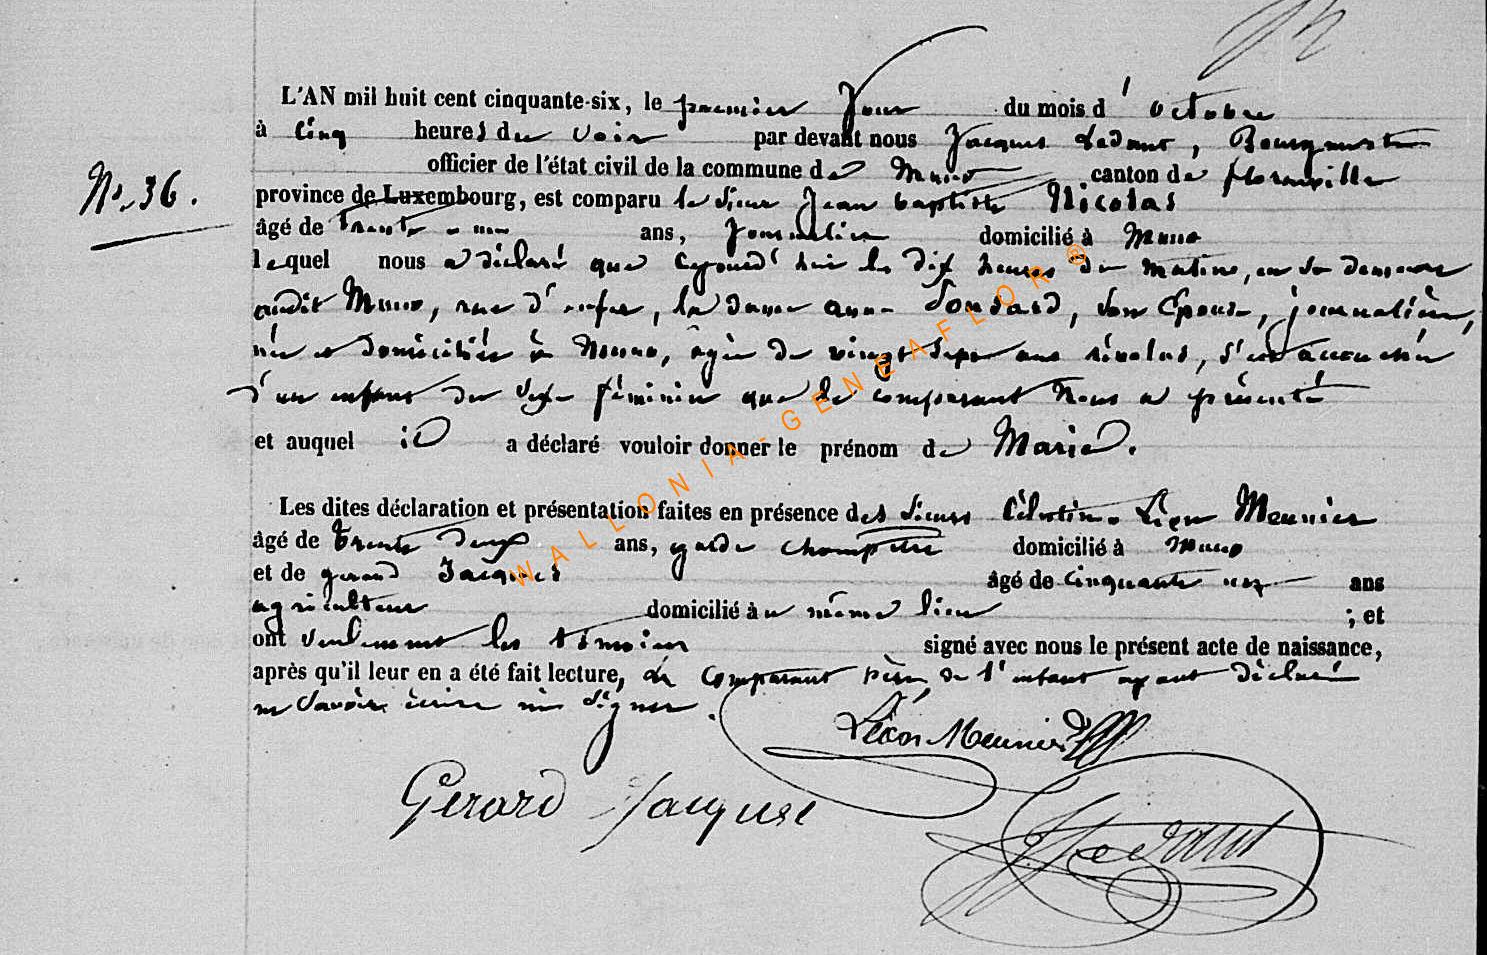 L'AN mil huit cent cinquante-six, le premier Jour du mois d' octobre
à Cinq heures du Soir par devant nous Jacques Ledant, Bourgmestre
officier de l'état civil de la commune de Muno canton de florenville
No. 36.
province de Luxembourg, est comparu le Sieur Jean baptiste Nicolas
âgé de Trente - un ans, Journalier domicilié à Muno
lequel nous a déclaré que Cejourd'hui les dix heures du matin, en sa demeure
audit Muno, rue d'enfer, la dame anne Soudard, son Epouse, journalière,
née et domiciliée à Muno, agée de vingt Sept ans révolus, s'est accouchée
d'un enfant du Sexe féminin que le comparant Nous a présenté
et auquel il a déclaré vouloir donner le prénom de Marie.
Les dites déclaration et présentation faites en présence des Sieurs Célestin Léon Meunier
âgé de Trente deux ans, garde champêtre domicilié à Muno
et de gerard Jacques âgé de cinquante ans
agriculteur domicilié au même lieu ; et
ont seulement les témoins signé avec nous le présent acte de naissance,
après qu'il leur en a été fait lecture, le comparant père de l'enfant ayant déclaré
ne Savoir écrire ni Signer.
Léon Meunier
Gerard Jacques
JLedant
WALLONIA-GENEAFLOR®